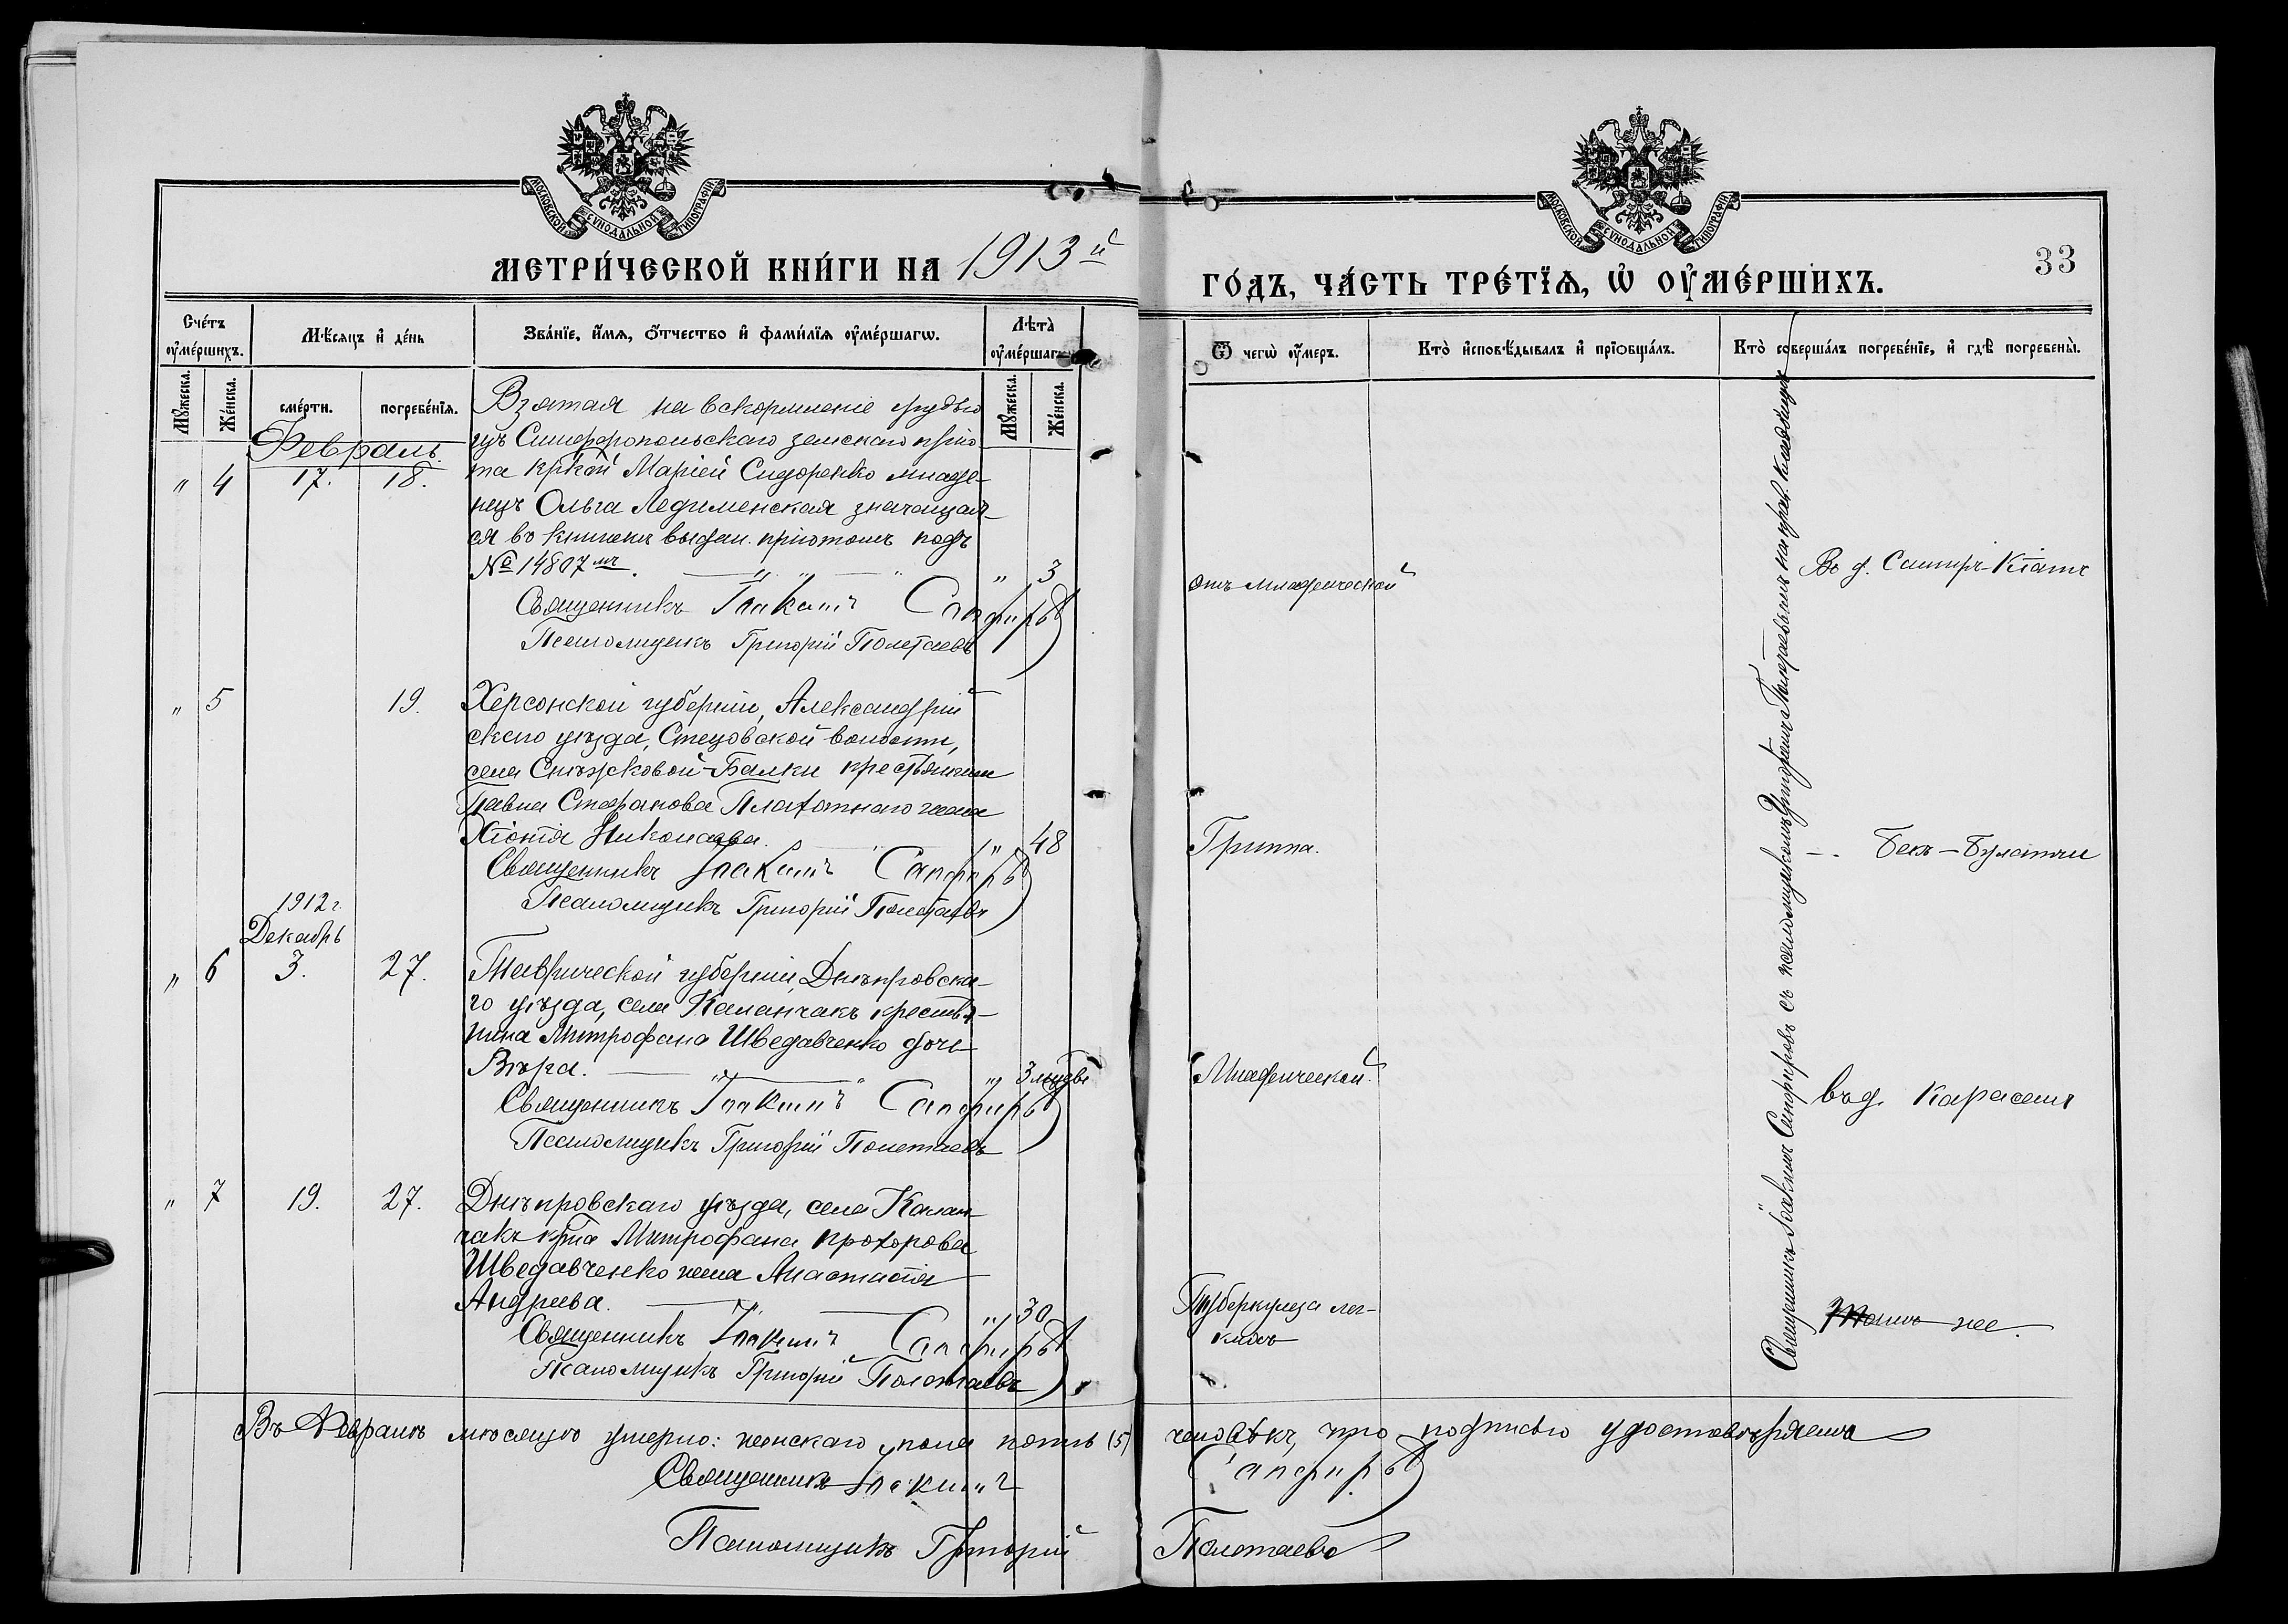 МОСКОВСКОЙ СУНОДАЛЬНОЙ ТИПОГРАФІИ
МОСКОВСКОЙ СУНОДАЛЬНОЙ ТИПОГРАФІИ
33
МЕТРИ́ЧЕСКОЙ КНИ́ГИ НА 1913й
ГО́ДЪ, ЧА́СТЬ ТРЕ́ТЇѦ, Ѡ҆ ОУ҆МЕ́РШИХЪ.
Сче́тъ оу҆ме́ршихъ.
Мѣ́сѧцъ и҆ де́нь
Зва́нїе, и҆́мѧ, ѻ҆́тчество и҆ фами́лїѧ оу҆ме́ршагѡ.
Лѣ́та оу҆ме́ршагѡ
Ѿ чегѡ̀ оу҆́меръ.
Кто̀ и҆сповѣ́дывалъ и҆ прїѻбща́лъ.
Кто̀ соверша́лъ погребе́нїе, и҆ гдѣ̀ погребены̀.
Мꙋ́жеска.
Же́нска.
сме́рти.
погребе́нїѧ.
Мꙋ́жеска.
Же́нска.
Февраль.
" 4 17. 18.
Взятая на вскормленіе грудью
изъ Симферопольскаго земскаго прію-
та кр-кой Маріей Сидоренко младе-
нецъ Ольга Ледименская значащая-
ся въ книжкѣ выдан. пріютомъ подъ
№ 14807мъ. " 3
Священникъ Іоакимъ Сапфировъ
Псаломщикъ Григорій Полетаевъ
отъ младенческой
Въ д.
" 5 19.
Херсонской губерніи, Александрій
скаго уѣзда, Стецовской волости,
села Снѣжковой-Балки крестьянина
Павла Стефанова Плахотнаго жена
Хіонія Николаева. " 48
Священникъ Іоакимъ Сапфировъ
Псаломщикъ Григорій Полетаевъ
Гриппа.
— . Бекъ-Булатчи
1912 г.
Декабрь
" 6 3. 27.
Таврической губерніи, Днѣпровска-
го уѣзда, села Каланчакъ крестья-
нина Митрофана Шведавченко дочь
Вѣра. "
Священникъ Іоакимъ Сапфировъ
Псаломщикъ Григорій Полетаевъ
Младенческой.
въ д. Карасанъ
" 7 19. 27.
Днѣпровскаго уѣзда, села Калан-
чакъ кр-на Митрофана Прохорова
Шведавченко жена Анастасія
Андреева. " 30
Священникъ Іоакимъ Сапфировъ
Псаломщикъ Григорій Полетаевъ
Туберкулеза лег-
кихъ
Тамъ-же.
Священникъ Іоакимъ Сапфировъ съ псаломщикомъ Григоріемъ Полетаевымъ на прав. кладбищѣ
Въ Февралѣ мѣсяцѣ умерло: женскаго пола пять (5) человѣкъ, что подписью удостовѣряемъ
Священникъ Іоакимъ Сапфировъ
Псаломщикъ Григорій Полетаевъ